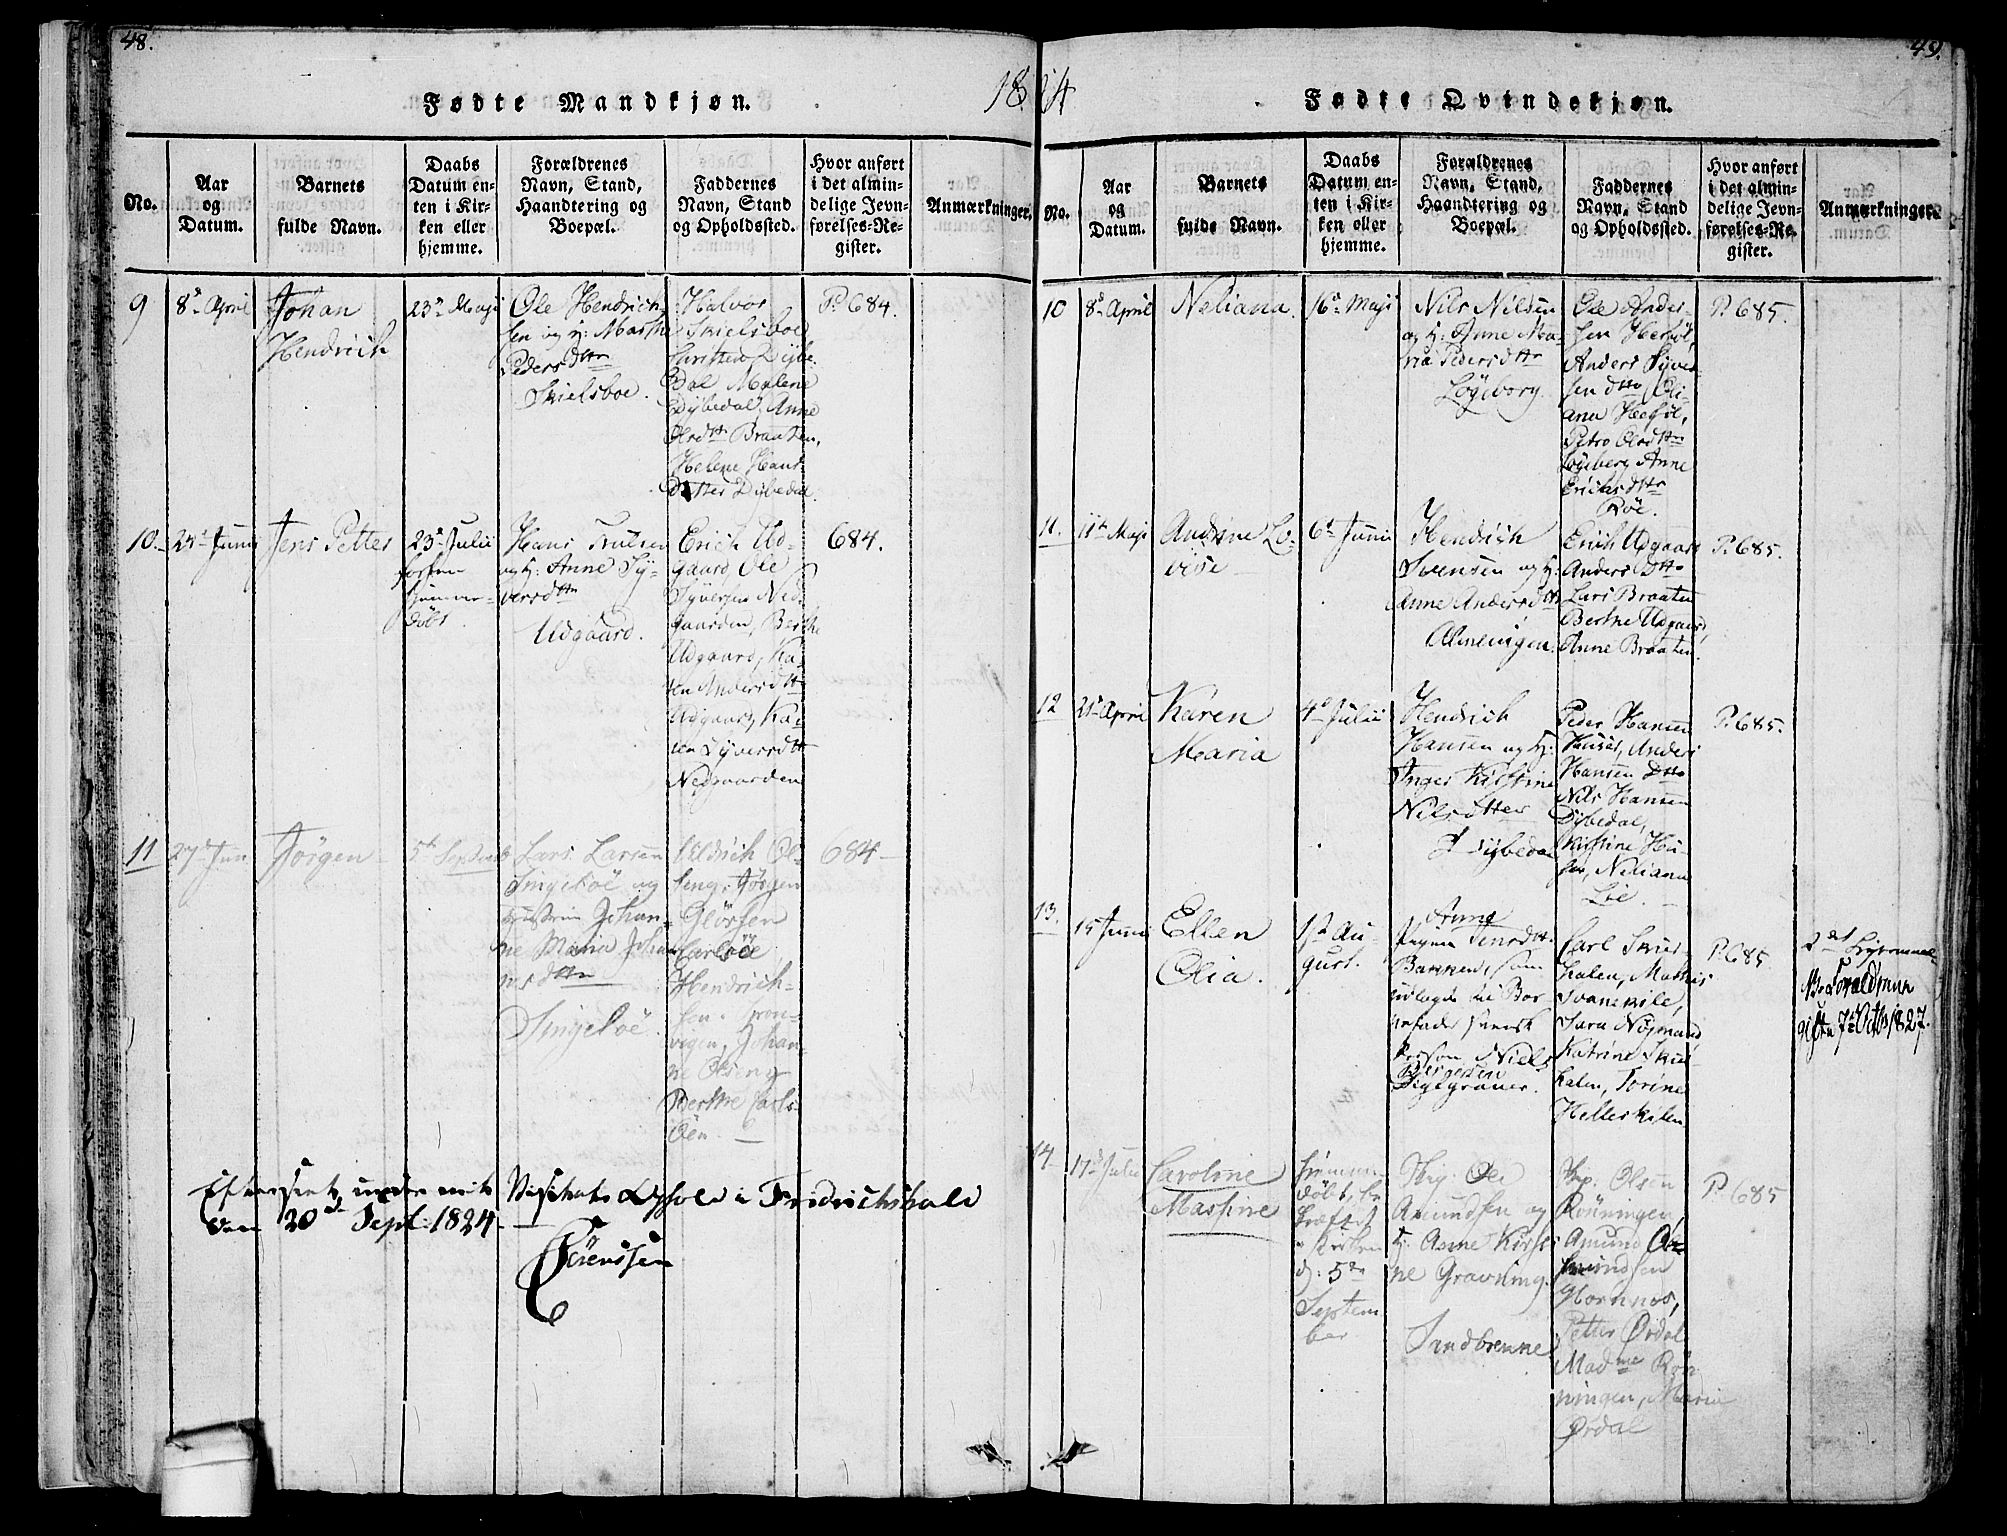 48.
Fødte Mandkjøn.
1824
No.
Aar
og
Datum.
Barnets
fulde Navn.
Daabs
Datum en-
ten i Kir-
ken eller
hjemme.
Forældrenes
Navn, Stand,
Haandtering og
Boepæl.
Faddernes
Navn, Stand
og Opholdssted.
Hvor anført
i det almin-
delige Jevn-
førelses-Re-
gister.
Anmærkninger.
9
8de April
Johan
Hendrich
23de Maji
Ole Hendrich-
sen og H: Marthe
Pedersdttr
Skielsboe.
Halvor
Skielsboe
Christen Dybe-
dal Malene
Dybedal, Anne
Olsdttr Braaten,
Helene Hans-
datter Dybedal.
P. 684.
10.
Juni
Jens Petter
23de Julii
hjemme-
døbt.
Hans Trulsen
og H: Anne Sy-
versdttr
Udgaard.
Erich Ud-
gaard, Ole
Syversen Ned-
gaarden, Berthe
Udgaard, Ka-
ren Andersdttr
Udgaard, Ka-
ren Syversdttr
Nedgaarden
684.
11
27de Jun
Jørgen
5te Septemb
Lars Larsen
Singeløe og
Hustrue Johan-
ne Maria Johan-
nesdttr
Singeløe.
Uldrich Ol-
seng, Jørgen
Glossen
Carlsöe
Hendrich-
sen
vigen, Johan-
ne Olseng
Berthe Carls-
Öen.
684
Efterseet under mit Visitats Ophold i Fredrichshald
den 20de Sept. 1824
Sørenssen
49.
Fødte Qvindekjøn.
No.
Aar
og
Datum.
Barnets
fulde Navn.
Daabs
Datum en-
ten i Kir-
ken eller
hjemme.
Forældrenes
Navn, Stand,
Haandtering og
Boepæl.
Faddernes
Navn, Stand
og Opholdssted.
Hvor anført
i det almin-
delige Jevn-
førelses-Re-
gister.
Anmærkninger.
10
8de April
Neliana.
16de Maji
Nils Nilsen
og H: Anne Ma-
ria Pedersdttr
Løgeborg.
Ole Ander-
sen Heehøl,
Anders Syver-
sen dtto, Oli-
ana Heehøl,
Petro Olsdttr
Løgeberg Anne
Erichsdttr
Röe.
P. 685.
11.
11te Maji
Andrine Lo-
vise
6te Junii
Hendrich
Svensen og H:
Anne Andersdttr
Almeningen.
Erich Udgaard
Anders dtto
Lars Braaten
Berthe Udgaard,
Anne Braaten.
P. 685.
12
21de April
Karen
Maria
4de Julii
Hendrich
Hansen og H:
Inger Kirstine
Nilsdtter
Dybedal
Peder Hansen
Huser, Anders
Hansen dtto
Nils Hansen
Dybedal,
Kirstine Hu-
ser, Neliana
Löe.
P. 685.
13.
15 Junii
Ellen
Olia.
1ste Au-
gust.
Anne
Jensdttr.
Barnen, som
udlagde til Bar-
nefader svensk
Person Niels
Børgersen
Carl Skul-
kalen, Mathis
Svanekile,
Sara Nøjmand
Katrine Skul-
kalen, Torine
Hellekalen
P. 685.
2det Leyermaal
NB. Forældrene
gifte 7de Octb. 1827.
14
17de Julii
Caroline
Massine
Hjemme-
døbt, be-
kræftet
i Kirken
d: 5te
Septem-
ber
Hr: Ole
Amundsen og
H. Anne Kirsti-
ne Gravning.
Sandbrenne
Hr: Olsen
Rønningen,
Amund A-
mundsen
Hornnes,
Petter Ørdal
Madme Røn-
ningen, Maria
Ørdal
P. 685